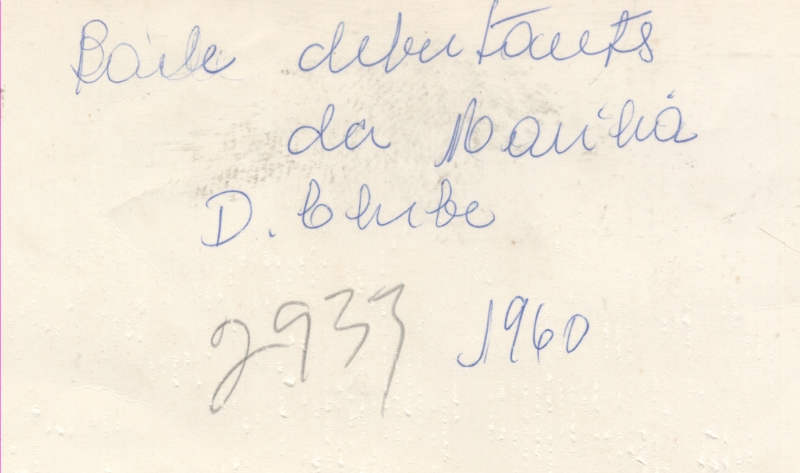 Baile debutants
da Marilia
D. Clube
2933 1960